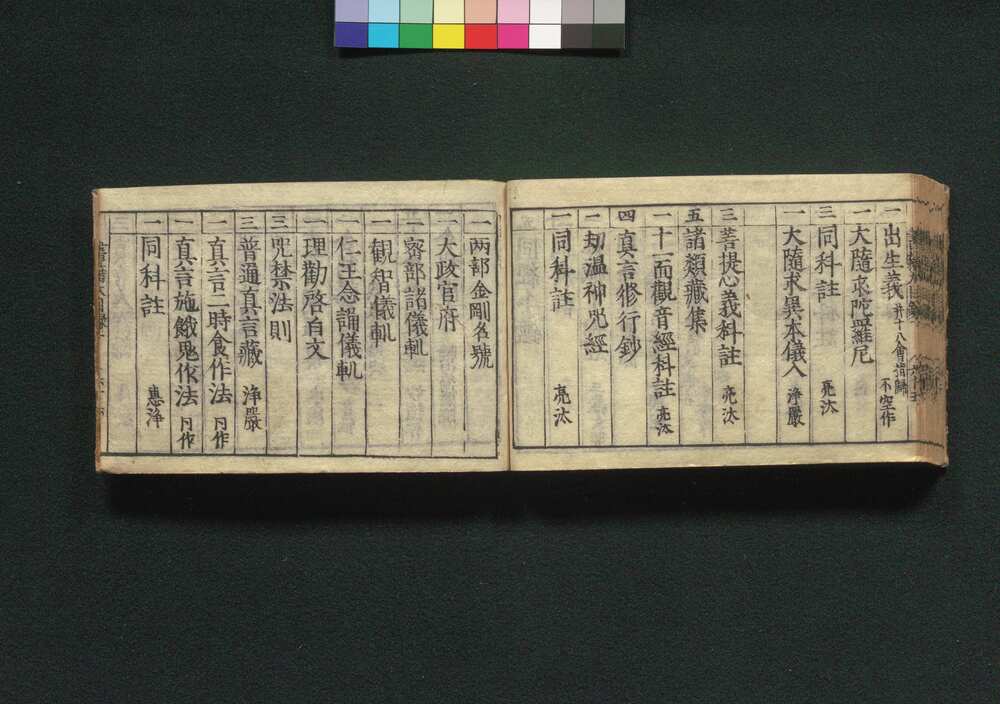 一 出生義 并十八會指歸 不空作
一 大隨求陀羅尼
三 同科註 亮汰
一 大隨求異本儀人 浄嚴
三 菩提心義科註 亮汰
五 諸類藏集
一 十一面觀音經科註 亮汰
四 真言修行鈔
一 却温神咒經
一 同科註 亮汰
一 兩部金剛名號
一 大政官府
一 密部諸儀軌
一 観智儀軌
一 仁王念誦儀軌
一 理勸啓白文
三 咒禁法則
三 普通真言藏 浄嚴
一 真言二時食作法 同作
一 真言施餓鬼作法 同作
一 同科註 惠浄